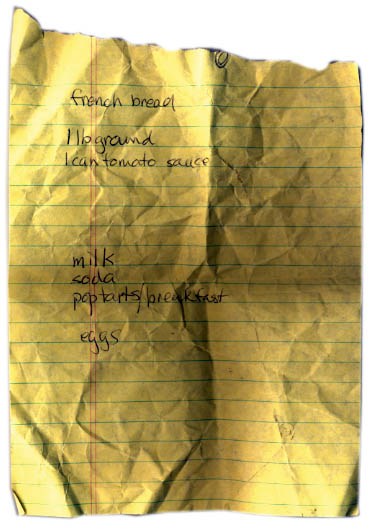 french bread
1 lb ground
1 can tomato sauce
milk
soda
poptarts/breakfast
eggs